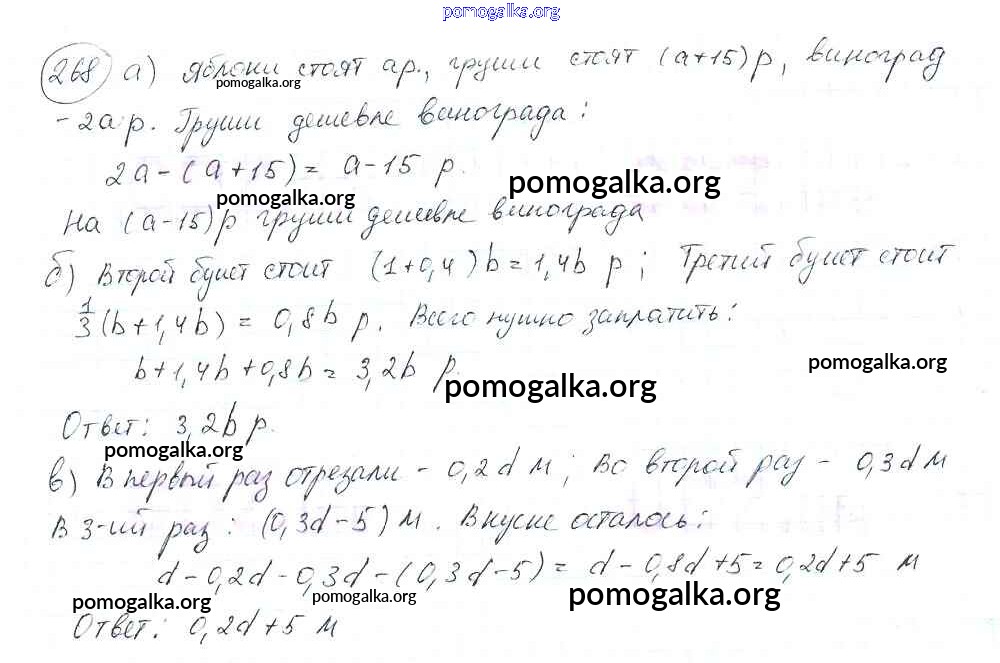 pomogalka.org
268 а) Яблоки стоят а р., груши стоят (а+15) р, виноград
pomogalka.org
- 2а р. Груши дешевле винограда:
2а - (а + 15) = а - 15 р.
pomogalka.org
pomogalka.org
На (а-15) р груши дешевле винограда
б) Второй букет стоит (1+0,4)b = 1,4b р; Третий букет стоит
1/3 (b+1,4b) = 0,8b р. Всего нужно заплатить:
pomogalka.org
b+1,4b+0,8b = 3,2b р.
pomogalka.org
Ответ: 3,2b р.
pomogalka.org
в) В первый раз отрезали - 0,2d м; Во второй раз - 0,3d м
В 3-ий раз: (0,3d-5) м. В куске осталось:
d - 0,2d - 0,3d - (0,3d-5) = d - 0,8d + 5 = 0,2d + 5 м
pomogalka.org
pomogalka.org
pomogalka.org
Ответ: 0,2d+5 м